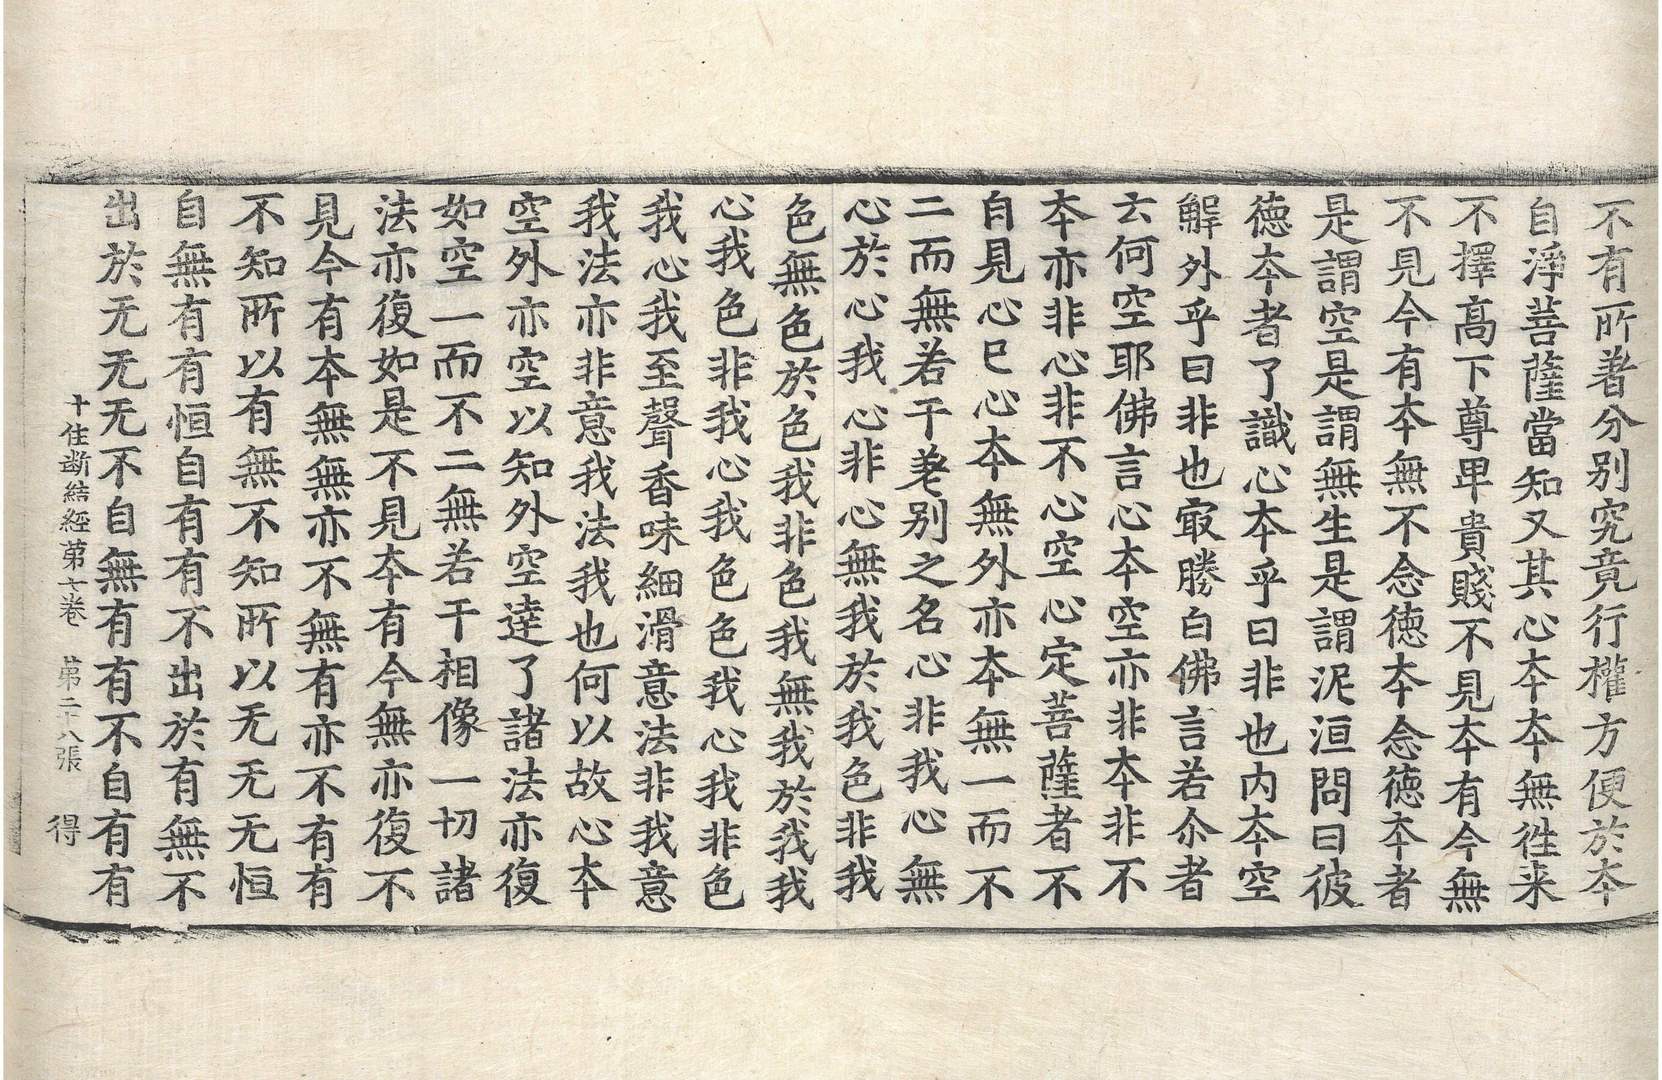 不有所著分别究竟行權方便於夲
自淨菩薩當知又其心夲夲無徃来
不擇髙下尊卑貴賤不見夲有今無
不見今有夲無不念徳夲念徳夲者
是謂空是謂無生是謂泥洹問曰彼
徳夲者了識心夲乎曰非也内夲空
解外乎曰非也㝡勝白佛言若尒者
云何空耶佛言心夲空亦非夲非不
夲亦非心非不心空心定菩薩者不
自見心已心夲無外亦夲無一而不
二而無若干差别之名心非我心無
心於心我心非心無我於我色非我
色無色於色我非色我無我於我我
心我色非我心我色色我心我非色
我心我至聲香味細滑意法非我意
我法亦非意我法我也何以故心夲
空外亦空空以知外空達了諸法亦復
如空一而不二無若干相像一切諸
法亦復如是不見夲有今無亦復不
見今有夲無無亦不無有亦不有有
不知所以有無不知所以无无无恒
自無有有恒自有有不出於有無不
出於无无无不自無有有不自有有
十住断結經第六卷 第二十八張 得